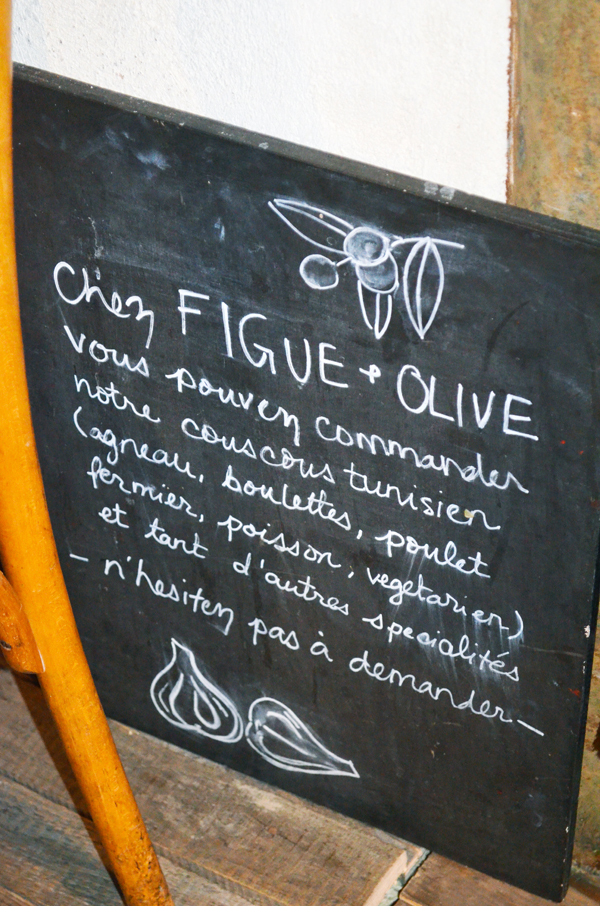 Chez FIGUE + OLIVE
vous pouvez commander
notre couscous tunisien
(agneau, boulettes, poulet
fermier, poisson, vegetarien)
et tant d'autres specialités
- n'hesitez pas à demander -